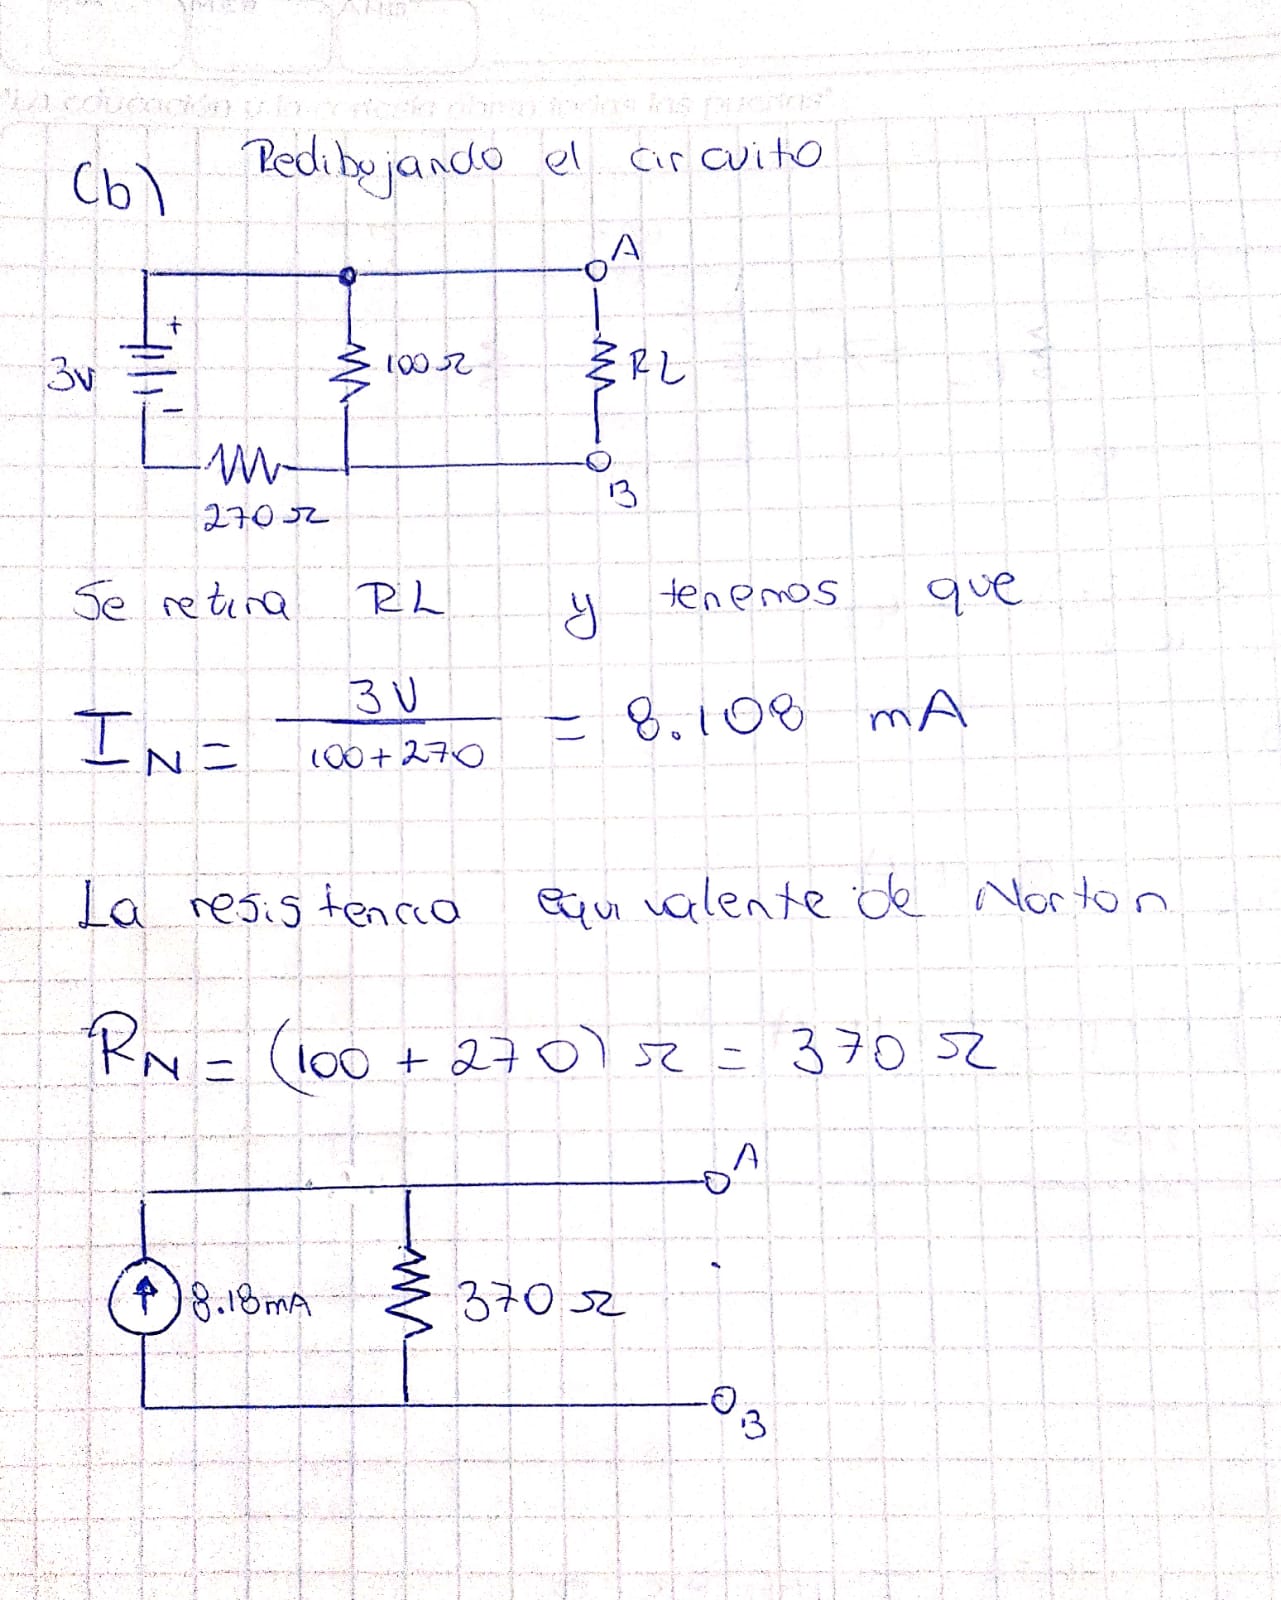 "La educación y la cortesía abren todas las puertas"
(b) Redibujando el circuito
A
3V
+
-
100Ω
RL
270Ω
B
Se retira RL y tenemos que
I N = 3V / 100+270 = 8.108 mA
La resistencia equivalente de Norton
RN = (100 + 270) Ω = 370 Ω
A
8.18mA
370 Ω
B